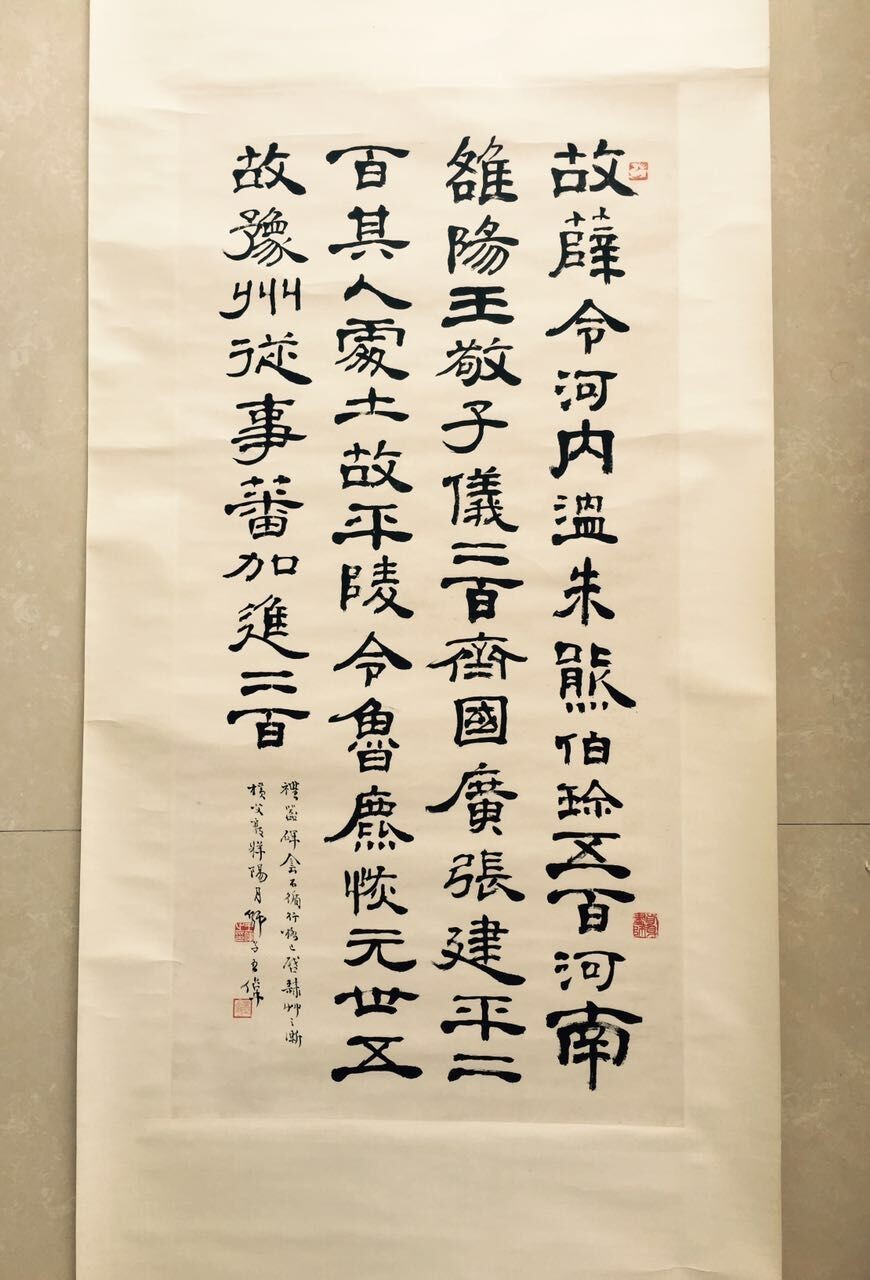 故薛令河内溫朱熊伯珍五百河南
雒陽王敬子儀二百齊國廣張建平二
百其人處士故平陵令魯麃恢元世五
故豫州從事蕃加進二百
禮器碑
陽月